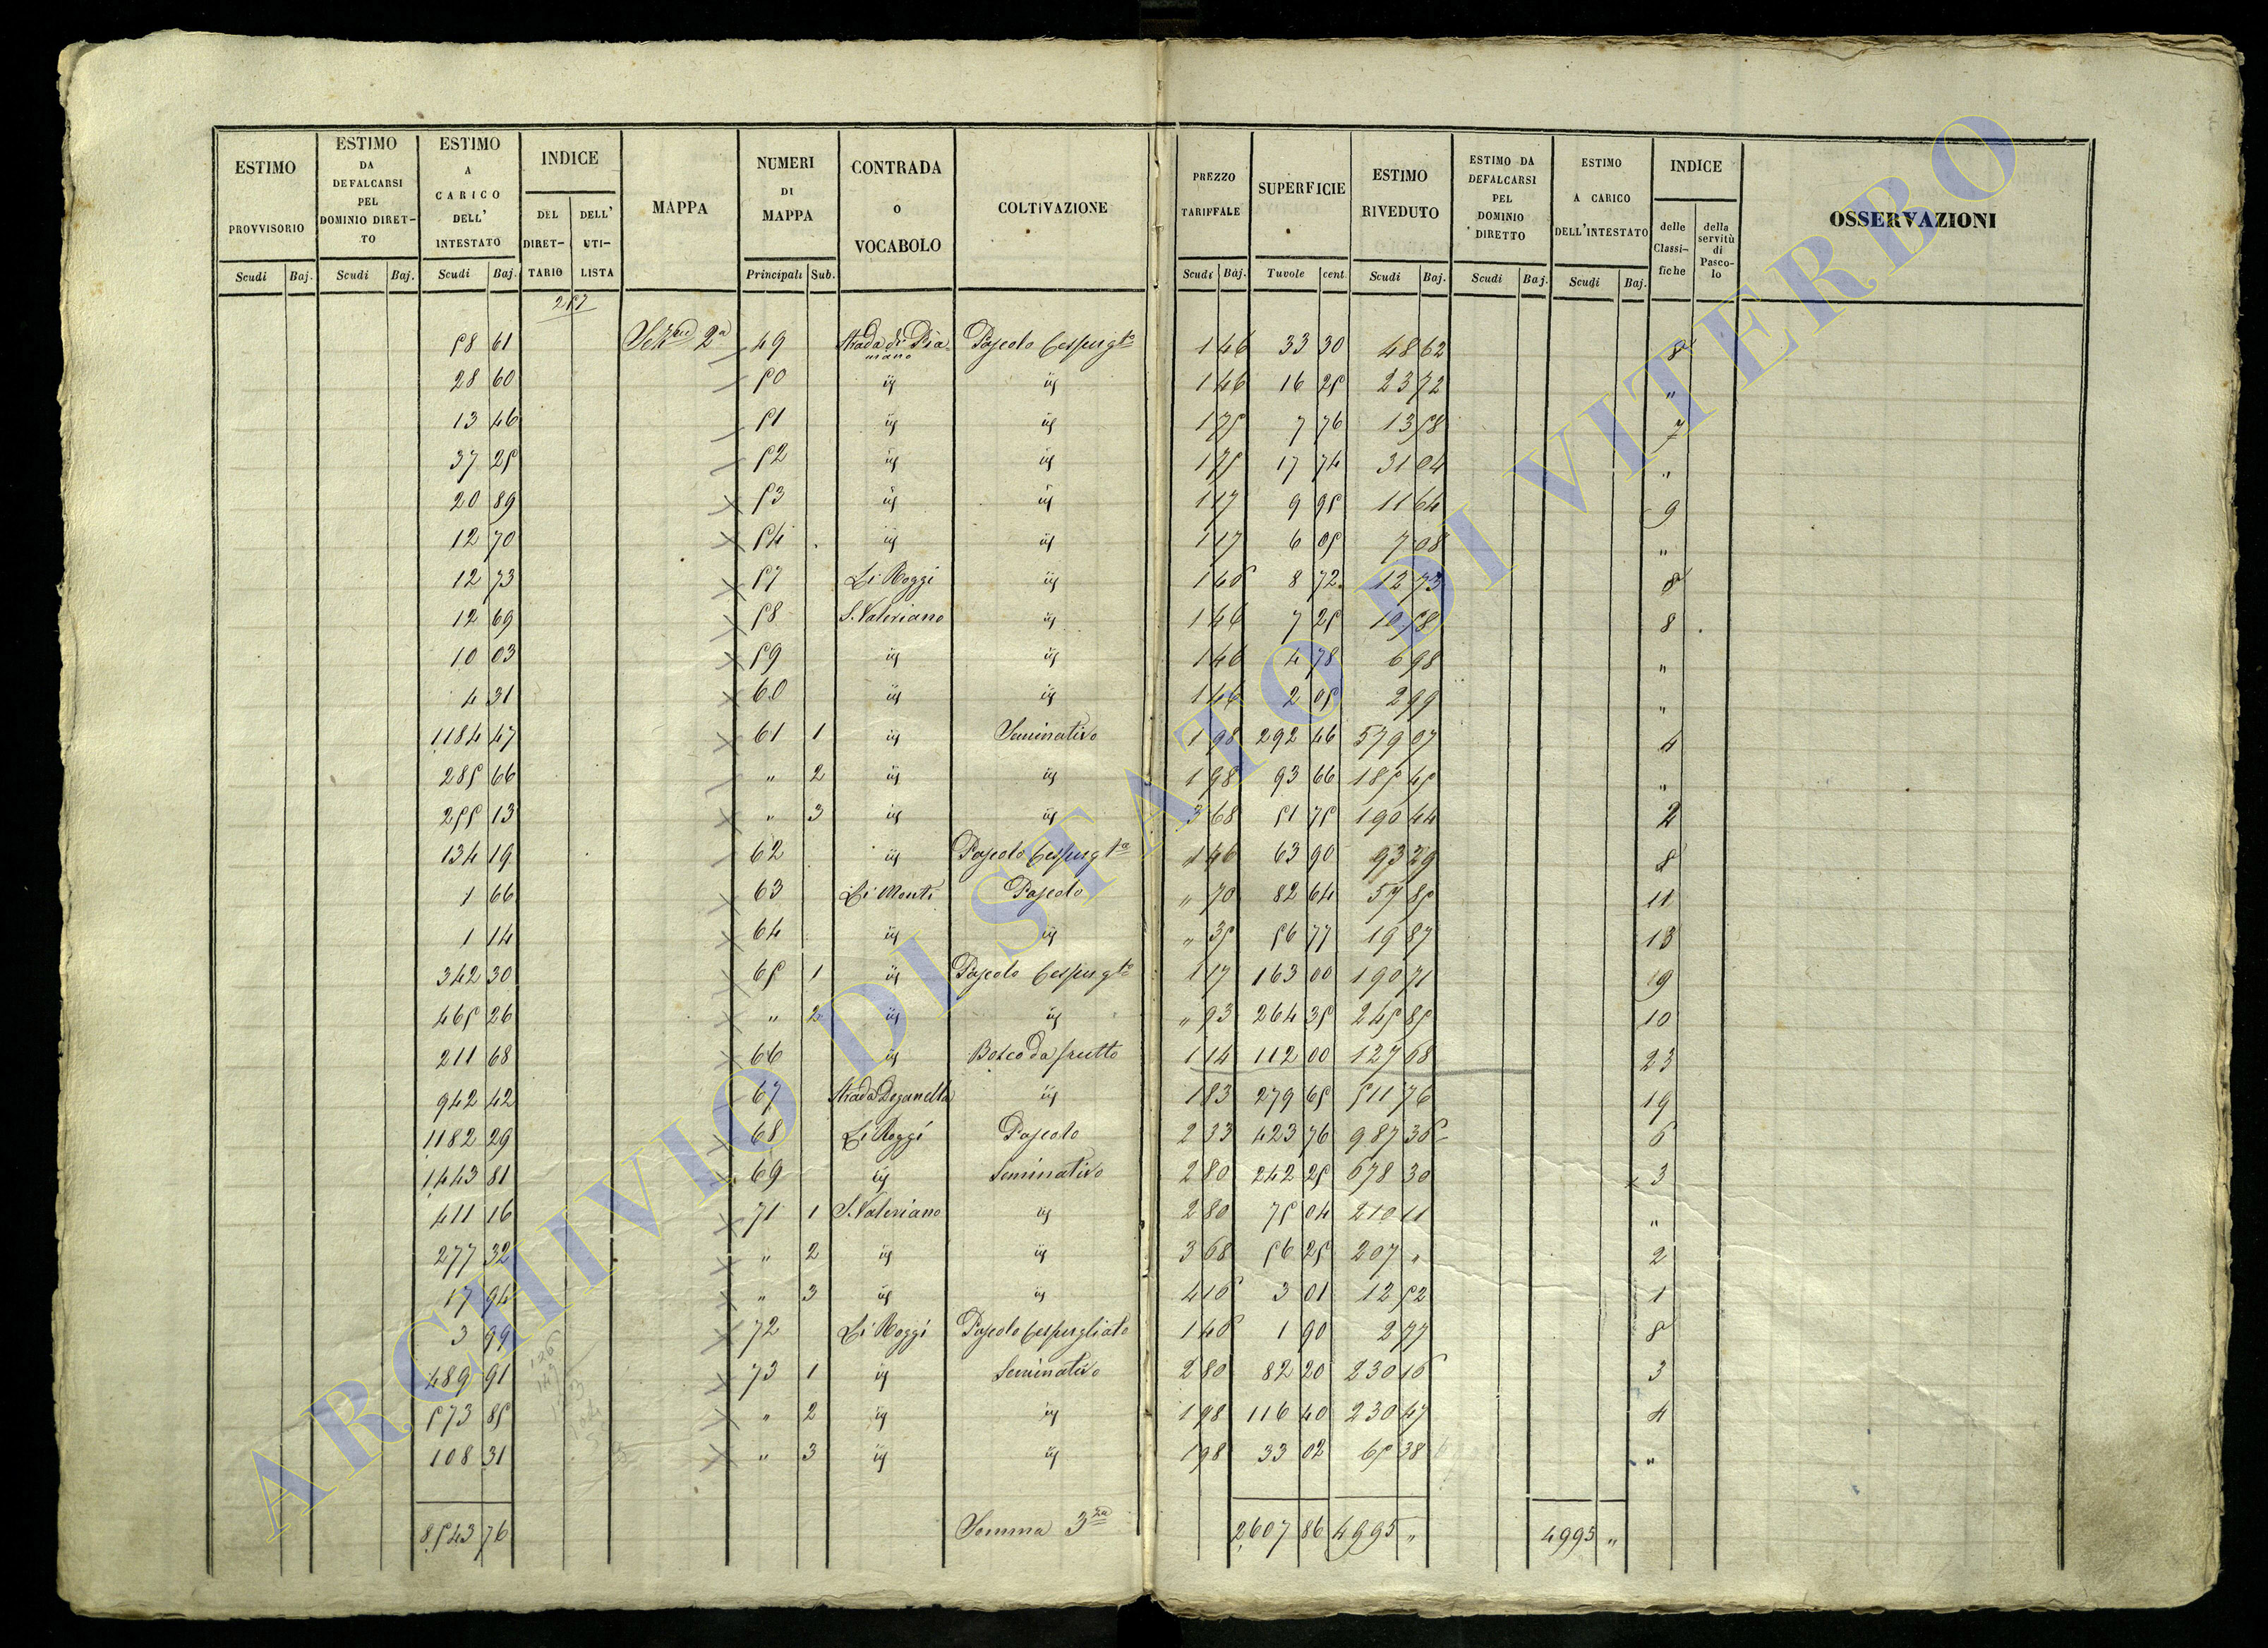 ESTIMO PROVVISORIO Scudi Baj.
ESTIMO DA DEFALCARSI PEL DOMINIO DIRET- TO Scudi Baj.
ESTIMO A CARICO DELL' INTESTATO Scudi Baj.
INDICE DEL DIRET- TARIO DELL' UTI- LISTA
MAPPA
NUMERI DI MAPPA Principali Sub.
CONTRADA O VOCABOLO
COLTIVAZIONE
PREZZO TARIFFALE Scudi Baj.
SUPERFICIE Tuvole cent
ESTIMO RIVEDUTO Scudi Baj.
ESTIMO DA DEFALCARSI PEL DOMINIO DIRETTO Scudi Baj.
ESTIMO A CARICO DELL'INTESTATO Scudi Baj.
INDICE delle Classi- fiche della servitù di Pasco- lo
OSSERVAZIONI
257
58 61 Sezne 2a 49 Strada di Pia- Pascolo Cespugto 1 46 33 30 48 62 8
nsano
28 60 50 id id 1 46 16 25 23 72 "
13 46 51 id id 1 75 7 76 13 58 7
37 25 52 id id 1 75 17 74 31 04 "
20 89 53 id id 1 17 9 95 11 64 9
12 70 54 id id 1 17 6 05 7 08 "
12 73 57 Li Roggi id 1 46 8 72 12 73 8
12 69 58 S. Valeriano id 1 46 7 25 10 58 8
10 03 59 id id 1 46 4 78 6 98 "
4 31 60 id id 1 46 2 05 2 99 "
1184 47 61 1 id Seminativo 1 98 292 46 579 07 4
285 66 " 2 id id 1 98 93 66 185 45 "
255 13 " 3 id id 3 68 51 75 190 44 2
134 19 62 id Pascolo Cespugto 1 46 63 90 93 29 8
1 66 63 Li Monti Pascolo " 70 82 64 57 85 11
1 14 64 id id " 35 56 77 19 87 13
342 30 65 1 id Pascolo Cespugto 1 17 163 00 190 71 9
465 26 " 2 id id " 93 264 35 245 85 10
211 68 66 id Bosco da frutto 1 14 112 00 127 68 23
942 42 67 Strada Doganella id 1 83 279 65 511 76 19
1182 29 68 Li Roggi Pascolo 2 33 423 76 987 36 6
1443 81 69 id Seminativo 2 80 242 25 678 30 3
411 16 71 1 S. Valeriano id 2 80 75 04 210 11 "
277 32 " 2 id id 3 68 56 25 207 " 2
17 94 " 3 id id 4 16 3 01 12 52 1
3 99 72 Li Roggi Pascolo Cespugliato 1 46 1 90 2 77 8
489 91 73 1 id Seminativo 2 80 82 20 230 16 3
573 85 " 2 id id 1 98 116 40 230 47 4
108 31 " 3 id id 1 98 33 02 65 38 "
8543 76 Somma 3za 2607 86 4995 " 4995 "
ARCHIVIO DI STATO DI VITERBO